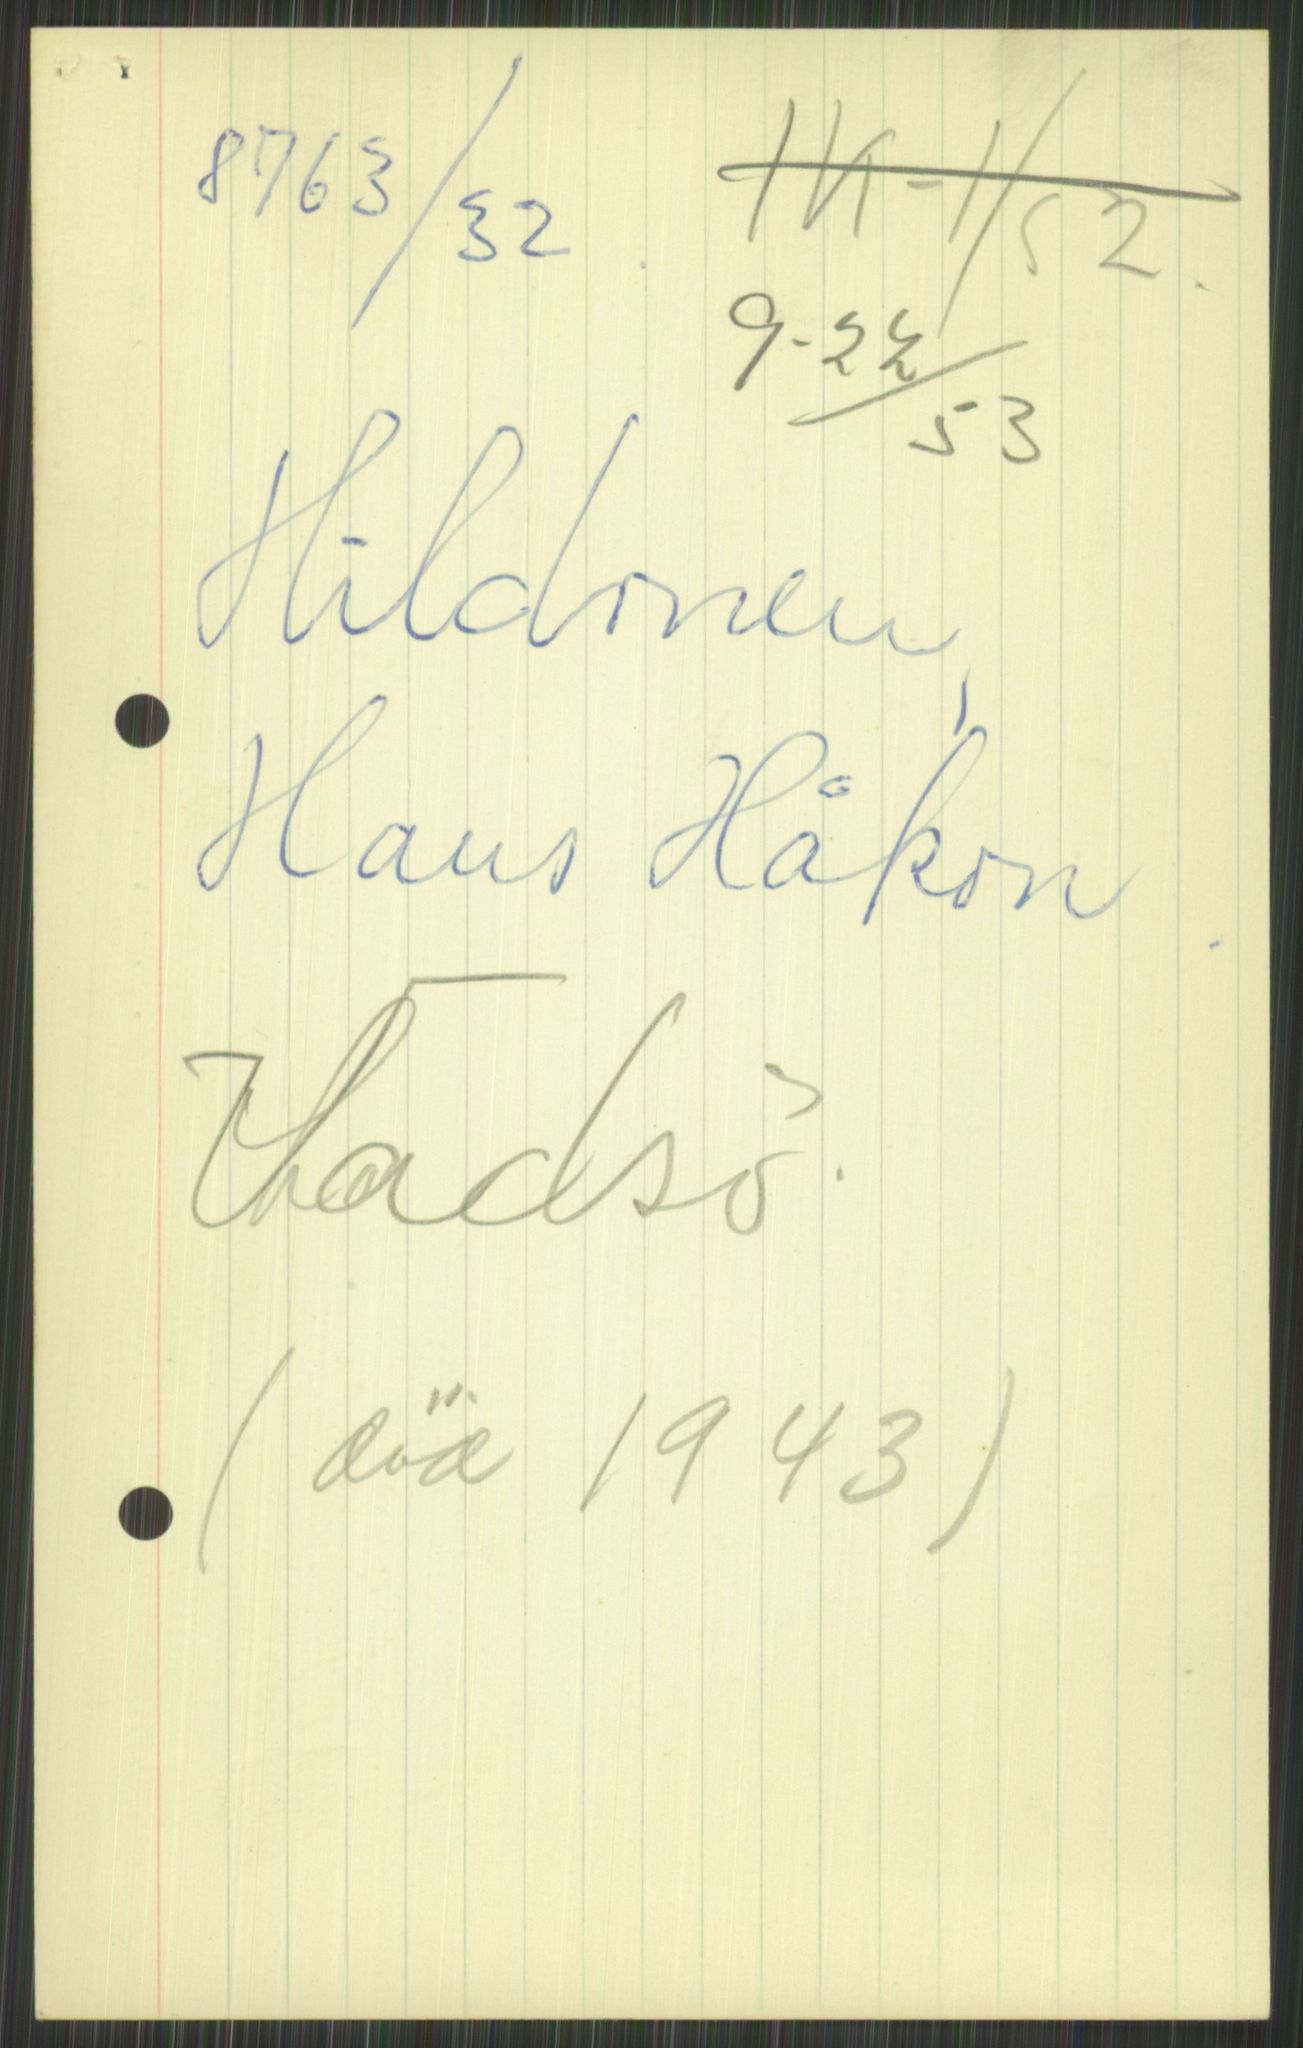 8763/52
1K-1/52.
9-22/53
Hildonen,
Hans Håkon.
Vadsö.
(död 1943)